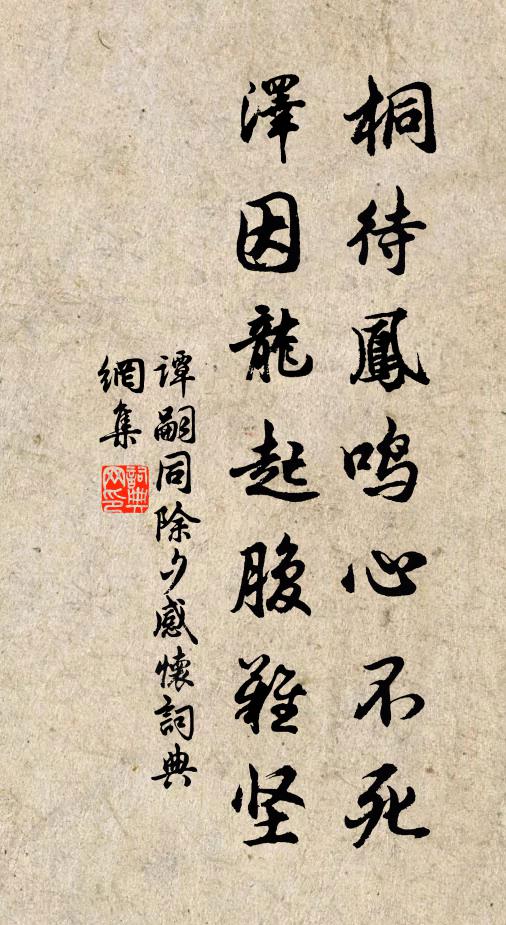 桐待鳳鳴心不死
澤因龍起腹難坚
谭嗣同除夕感懷詞典
網集
詞典網印